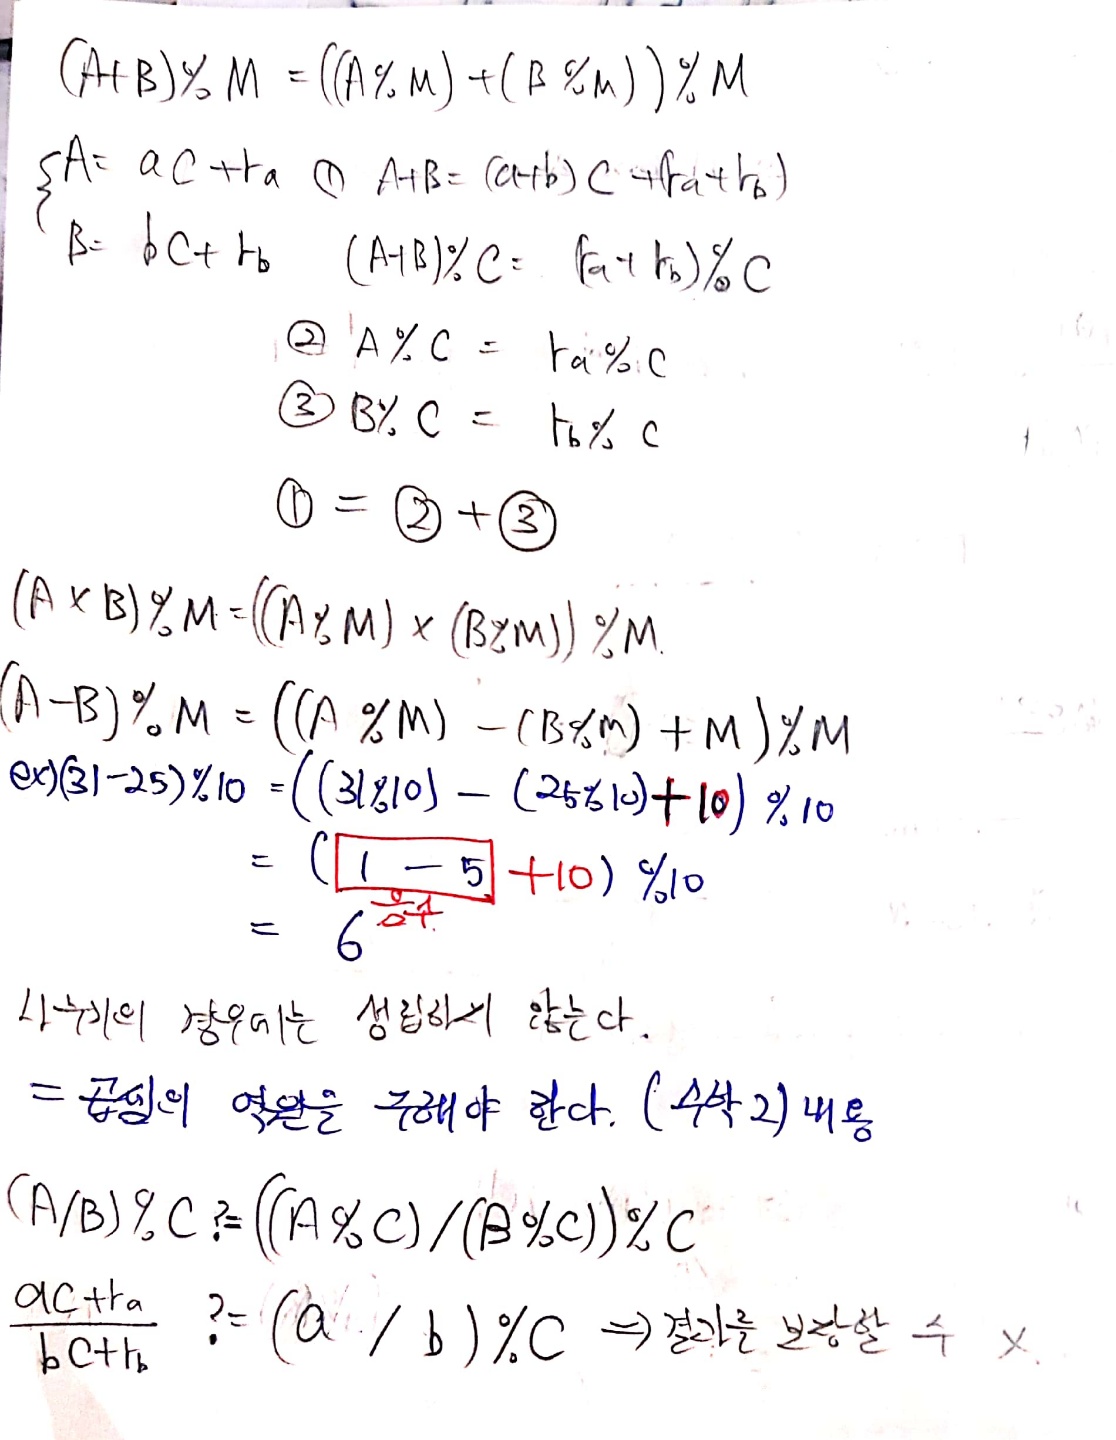 (A+B)%M = ((A%M)+(B%M))%M
{A= aC+ra ① A+B= (a+b)C+(ra+rb)
B= bC+rb (A+B)%C= (ra+rb)%C
② A%C = ra%C
③ B%C = rb%C
① = ②+③
(A×B)%M=((A%M)×(B%M))%M.
(A-B)%M = ((A%M) -(B%M)+M)%M
ex)(31-25)%10 =((31%10) - (25%10)+10)%10
= (1-5+10)%10
음수.
= 6
나누기의 경우에는 성립하지 않는다.
= 곱셈의 역원을 구해야 한다. (수학2) 내용
(A/B)%C ?= ((A%C)/(B%C))%C
aC+ra
bC+rb
?= (a/b)%C ⇒ 결과를 보장할 수 X.